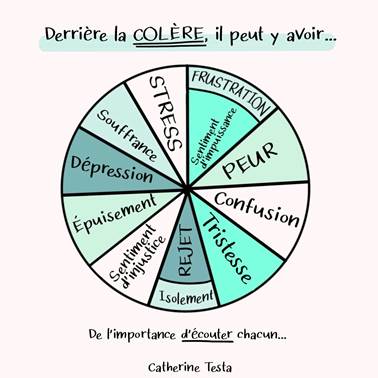 Derrière la COLÈRE, il peut y avoir...
FRUSTRATION
Sentiment
d'impuissance
PEUR
Confusion
Tristesse
REJET
Isolement
Sentiment
d'injustice
Épuisement
Dépression
Souffrance
STRESS
De l'importance d'écouter chacun...
Catherine Testa